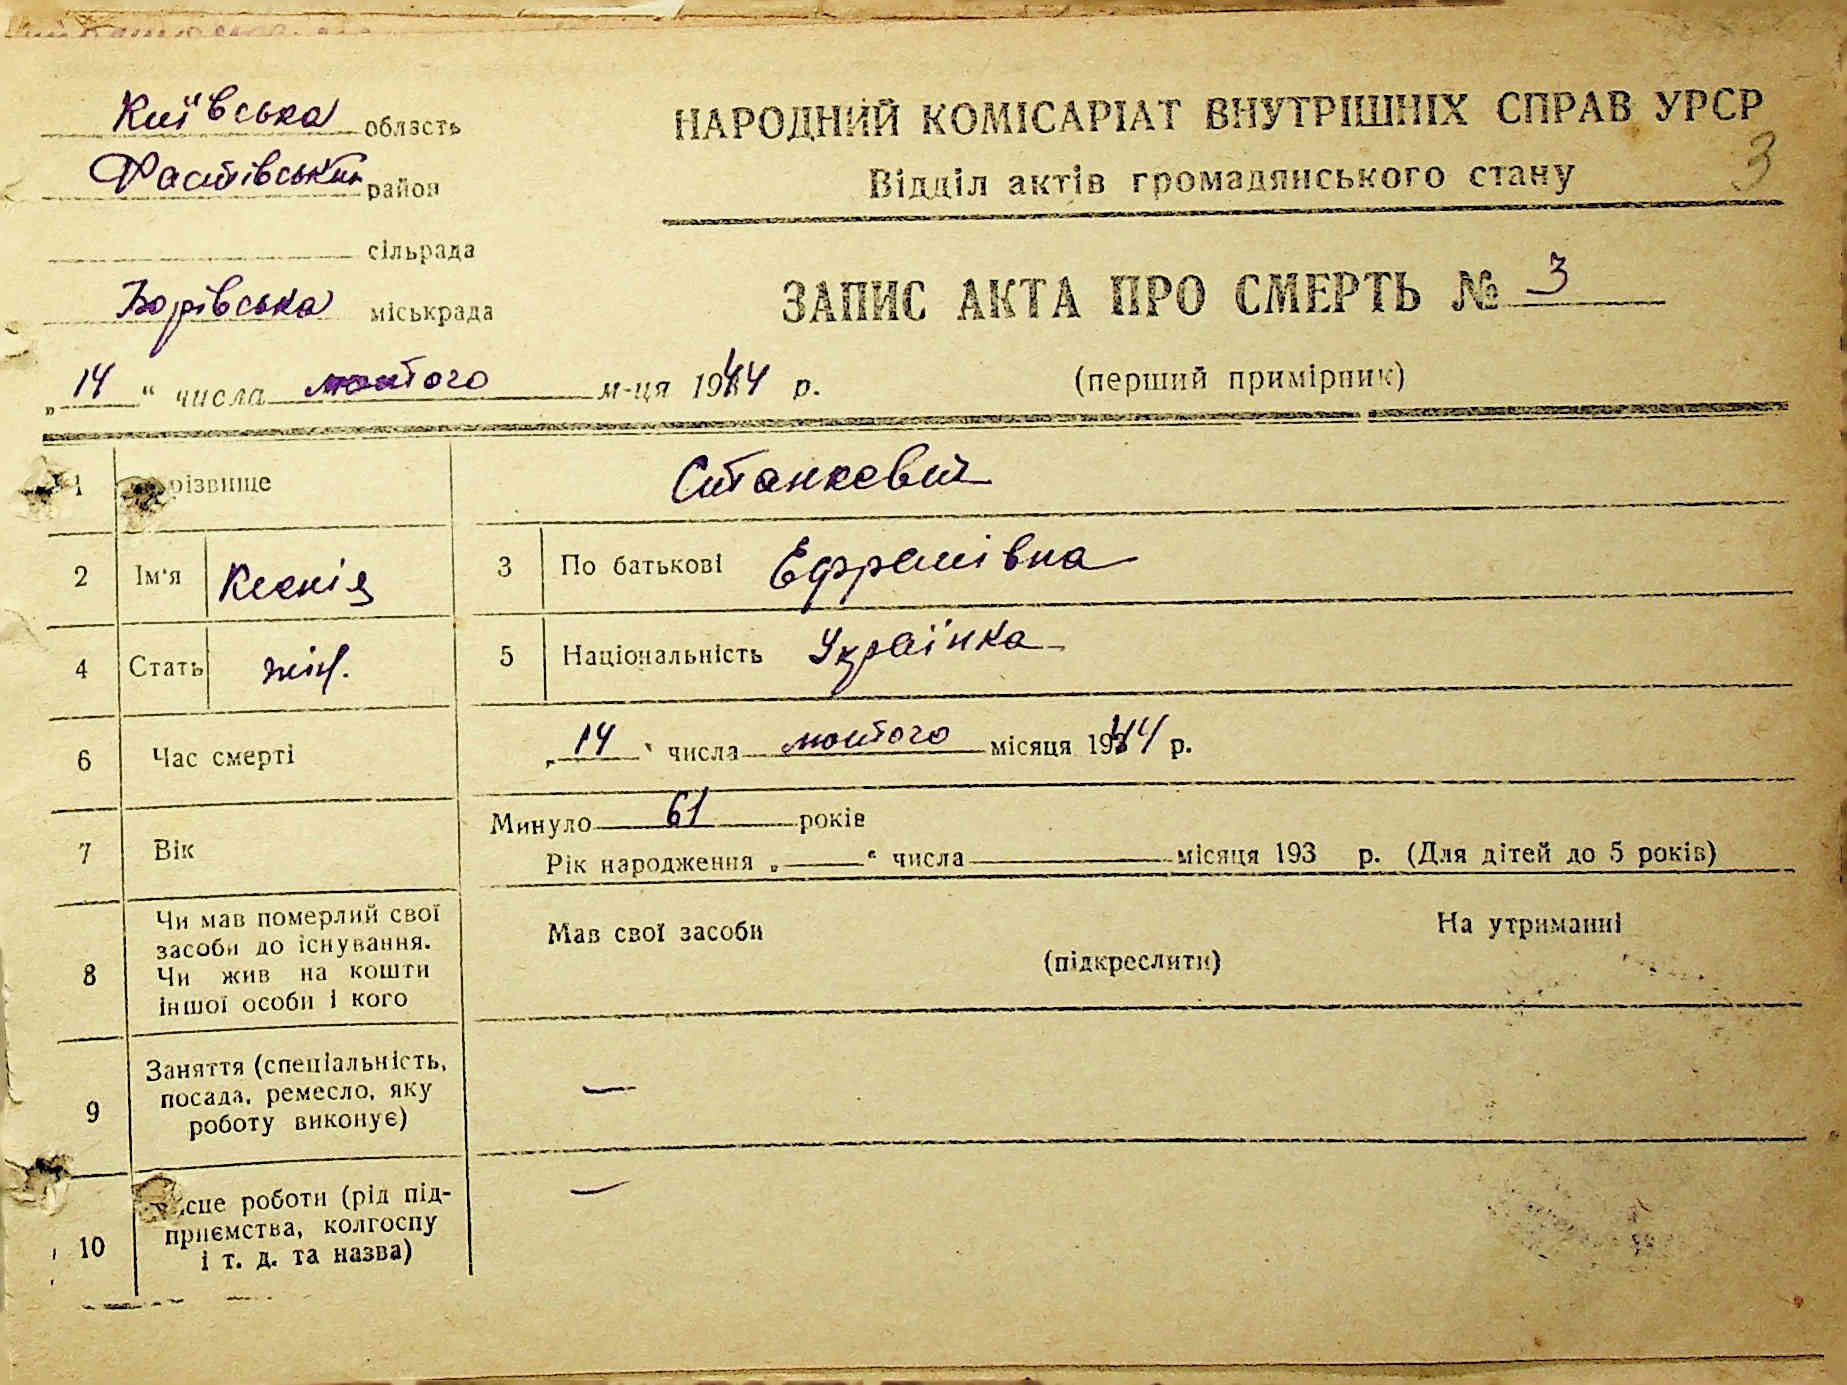 Київська область
Фастівський район
сільрада
Борівська міськрада
„14“ числа лютого м-ця 1944 р.
НАРОДНИЙ КОМІСАРІАТ ВНУТРІШНІХ СПРАВ УРСР
Відділ актів громадянського стану
3
ЗАПИС АКТА ПРО СМЕРТЬ № 3
(перший примірник)
1 різвище Станкевич
2 Ім'я Ксенія 3 По батькові
4 Стать жін. 5 Національність Українка
6 Час смерті „14“ числа лютого місяця 1944 р.
7 Вік Минуло 61 років
Рік народження „ “ числа місяця 193 р. (Для дітей до 5 років)
8 Чи мав померлий свої
засоби до існування.
Чи жив на кошти
іншої особи і кого
Мав свої засоби На утриманні
(підкреслити)
9 Заняття (спеціальність,
посада, ремесло, яку
роботу виконує)
—
10 сце роботи (рід під-
приємства, колгоспу
і т. д. та назва)
—